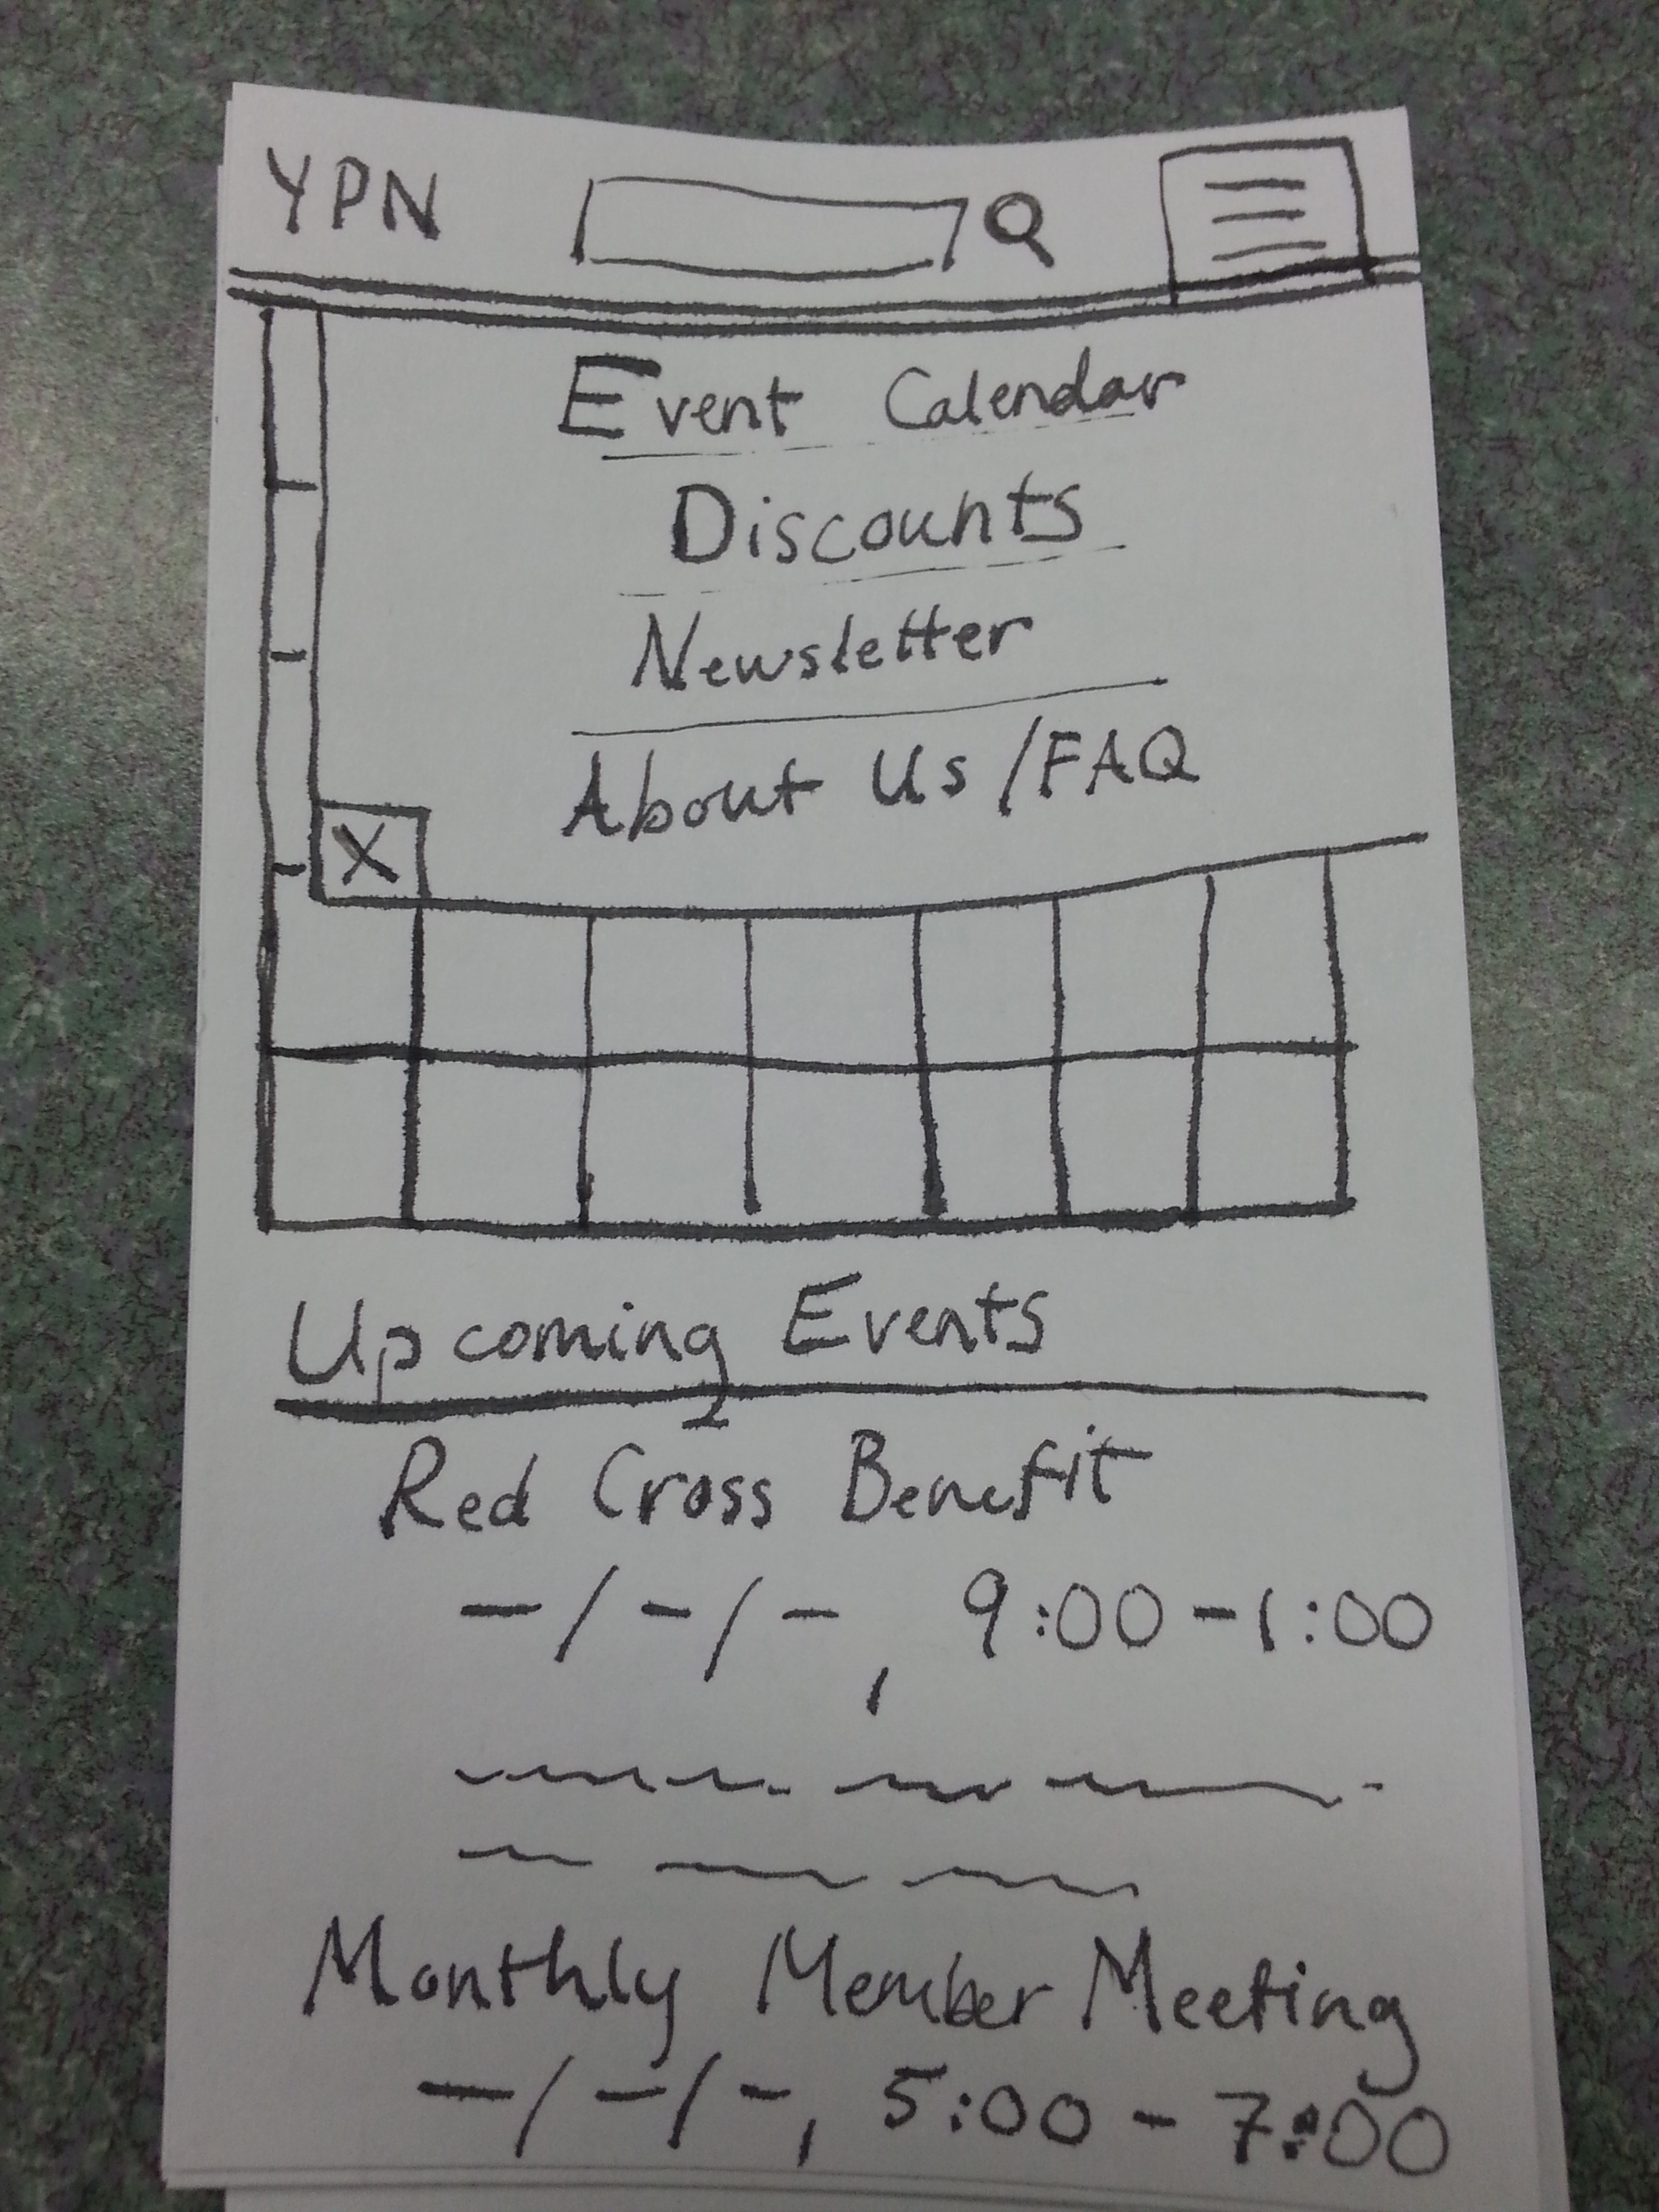 YPN
Event Calendar
Discounts
Newsletter
About Us /FAQ
X
Upcoming Events
Red Cross Benefit
-/-/-, 9:00-1:00
Monthly Member Meeting
-/-/-, 5:00-7:00